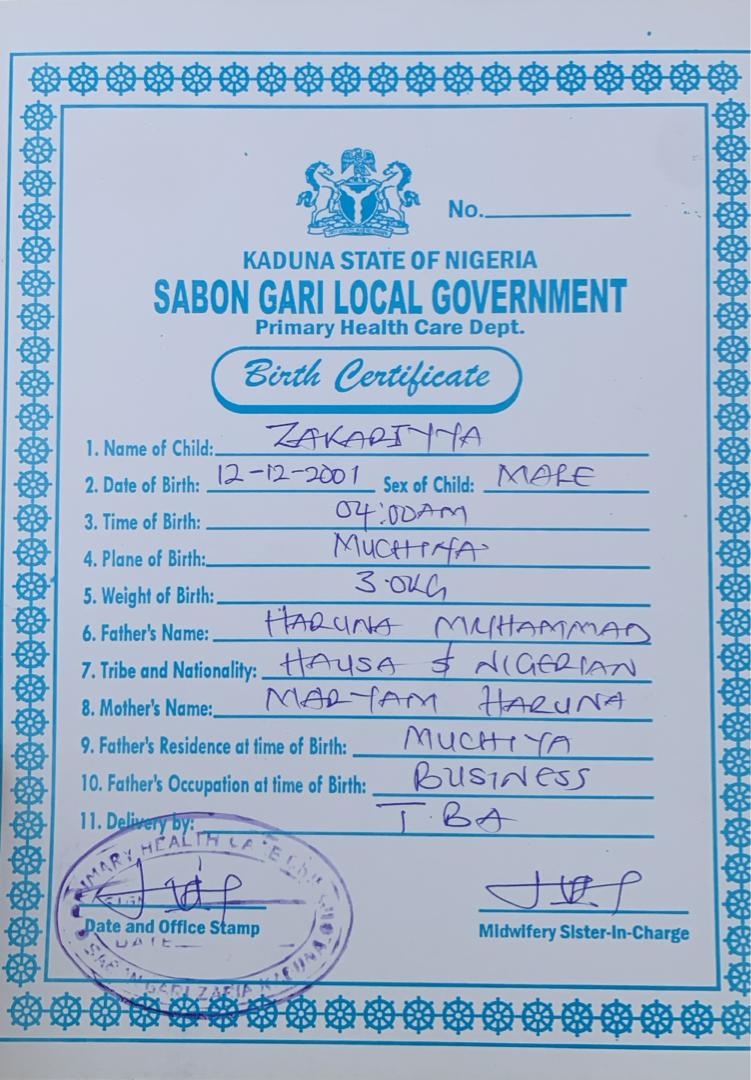 No.
KADUNA STATE OF NIGERIA
SABON GARI LOCAL GOVERNMENT
Primary Health Care Dept.
Birth Certificate
1. Name of Child: ZAKARIYYA
2. Date of Birth: 12-12-2001 Sex of Child: MALE
3. Time of Birth: 04:00AM
4. Plane of Birth: MUCHIYA
5. Weight of Birth: 3.0KG
6. Father's Name: HARUNA MUHAMMAD
7. Tribe and Nationality: HAUSA & NIGERIAN
8. Mother's Name: MARYAM HARUNA
9. Father's Residence at time of Birth: MUCHIYA
10. Father's Occupation at time of Birth: BUSINESS
11. Delivery by: T.BA
PRIMARY HEALTH CARE
Date and Office Stamp Midwifery Sister-In-Charge
DATE
SABON GARI ZARIA KADUNA